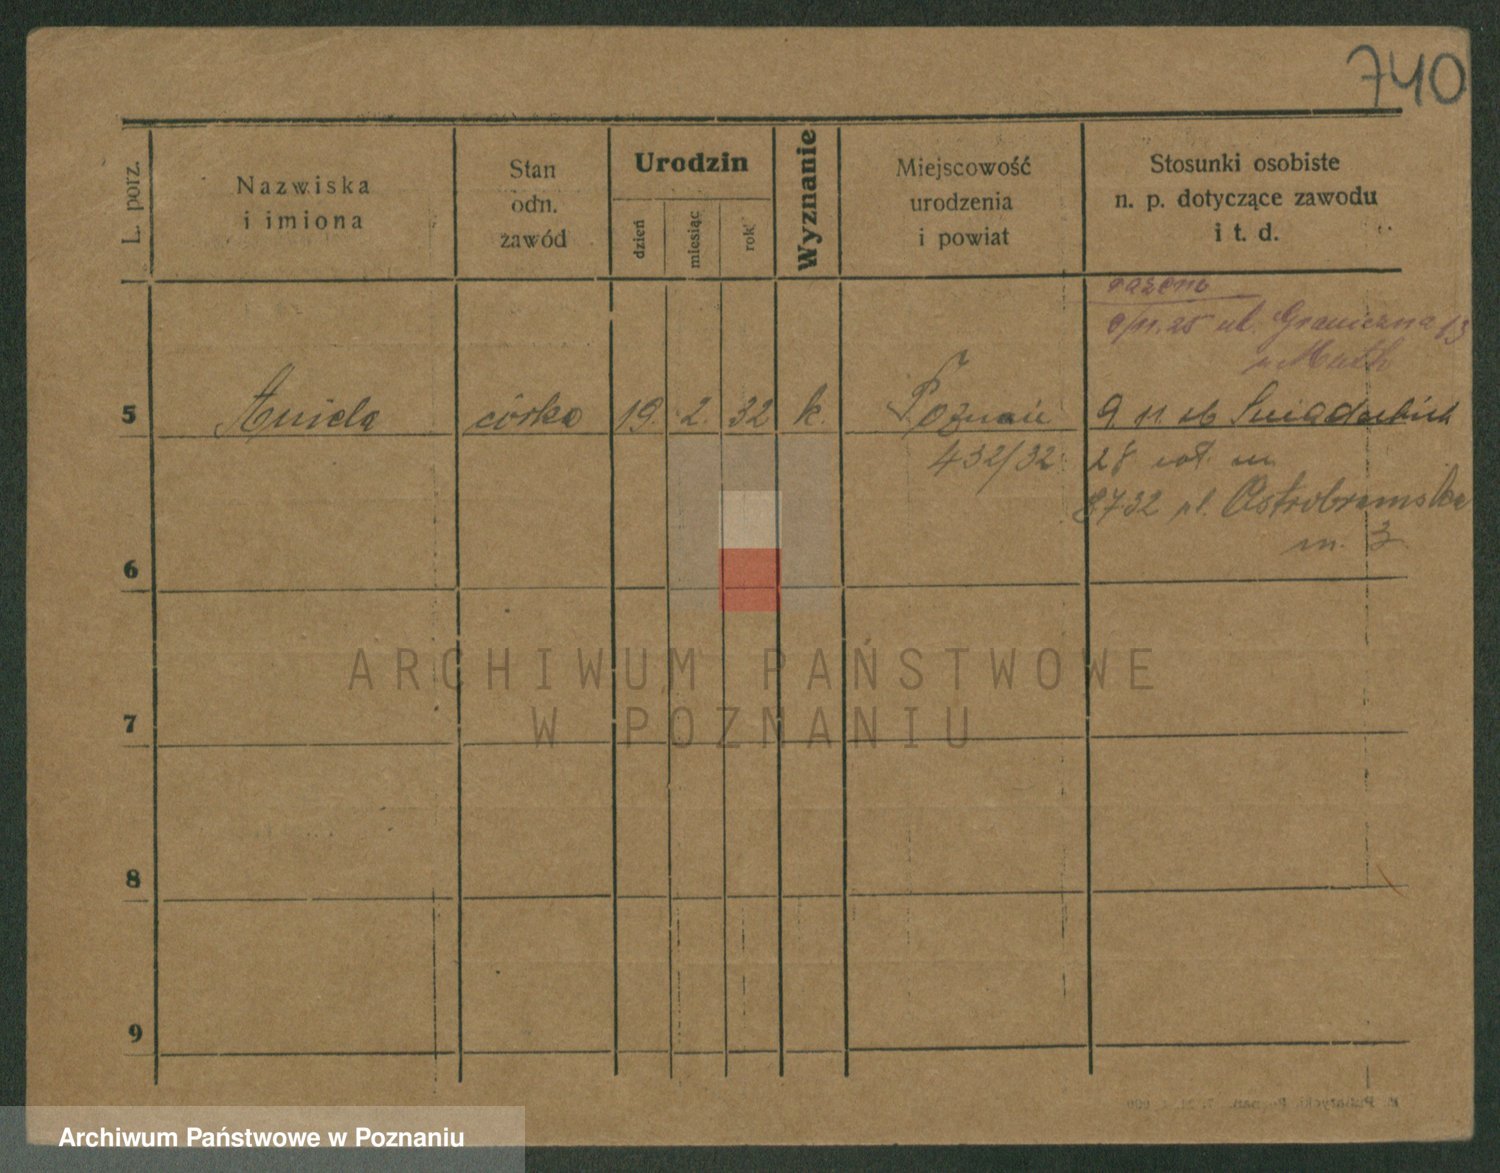 740
L. porz.
Nazwiska
i imiona
Stan
odn.
zawód
Urodzin
dzień
miesiąc
rok
Wyznanie
Miejscowość
urodzenia
i powiat
Stosunki osobiste
n. p. dotyczące zawodu
i t. d.
razono
ul. Graniczna 13
5
Aniela
córka
19. 2. 32
k.
Poznań
432/32
28
8732 pl. Ostrobramska
m. 3
6
7
8
9
ARCHIWUM PAŃSTWOWE
W POZNANIU
Archiwum Państwowe w Poznaniu